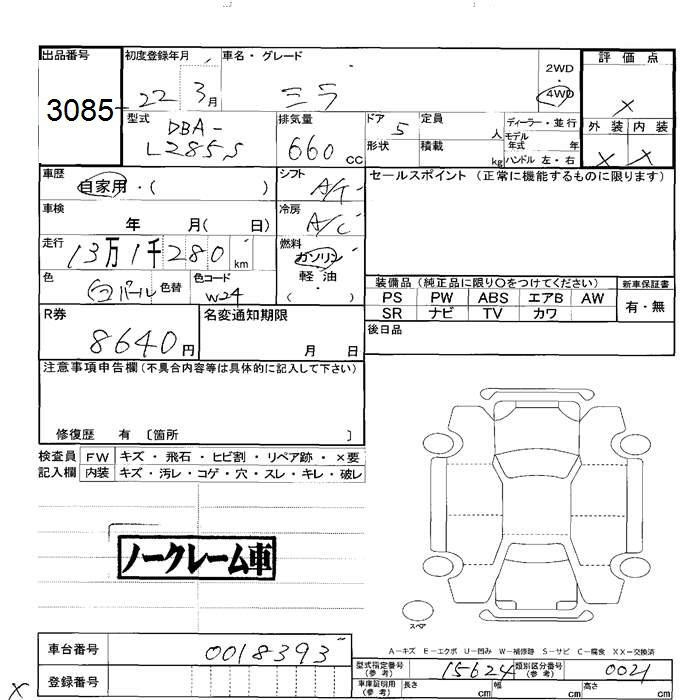 出品番号 初度登録年月 車名・グレード 2WD 評価点
3085 22 3月 ミラ 4WD X
型式 排気量 ドア 定員 ディーラー・並行 外装 内装
DBA- 5 人 モデル
L285S 660cc 形状 積載 年式 年
kg ハンドル 左・右 X X
車歴 シフト セールスポイント (正常に機能するものに限ります)
自家用・( ) A/T
車検 冷房
年 月( 日) A/C
走行 燃料
13万1千280km ガソリン
・
色 色替 色コード 軽油 装備品 (純正品に限り〇をつけてください) 新車保証書
白パール W24 ( ) PS PW ABS エアB AW 有・無
R券 名変通知期限 SR ナビ TV カワ
8640円 月 日 後日品
注意事項申告欄 (不具合内容等は具体的に記入して下さい)
修復歴 有 〔箇所 〕
検査員 FW キズ・飛石・ヒビ割・リペア跡・×要
記入欄 内装 キズ・汚レ・コゲ・穴・スレ・キレ・破レ
ノークレーム車
スペア
A-キズ E-エクボ U-凹み W-補修跡 S-サビ C-腐食 XX-交換済
車台番号 0018393 型式指定番号(参考) 15624 類別区分番号(参考) 0021
登録番号 車庫証明用(参考) 長さ cm 幅 cm 高さ cm
X